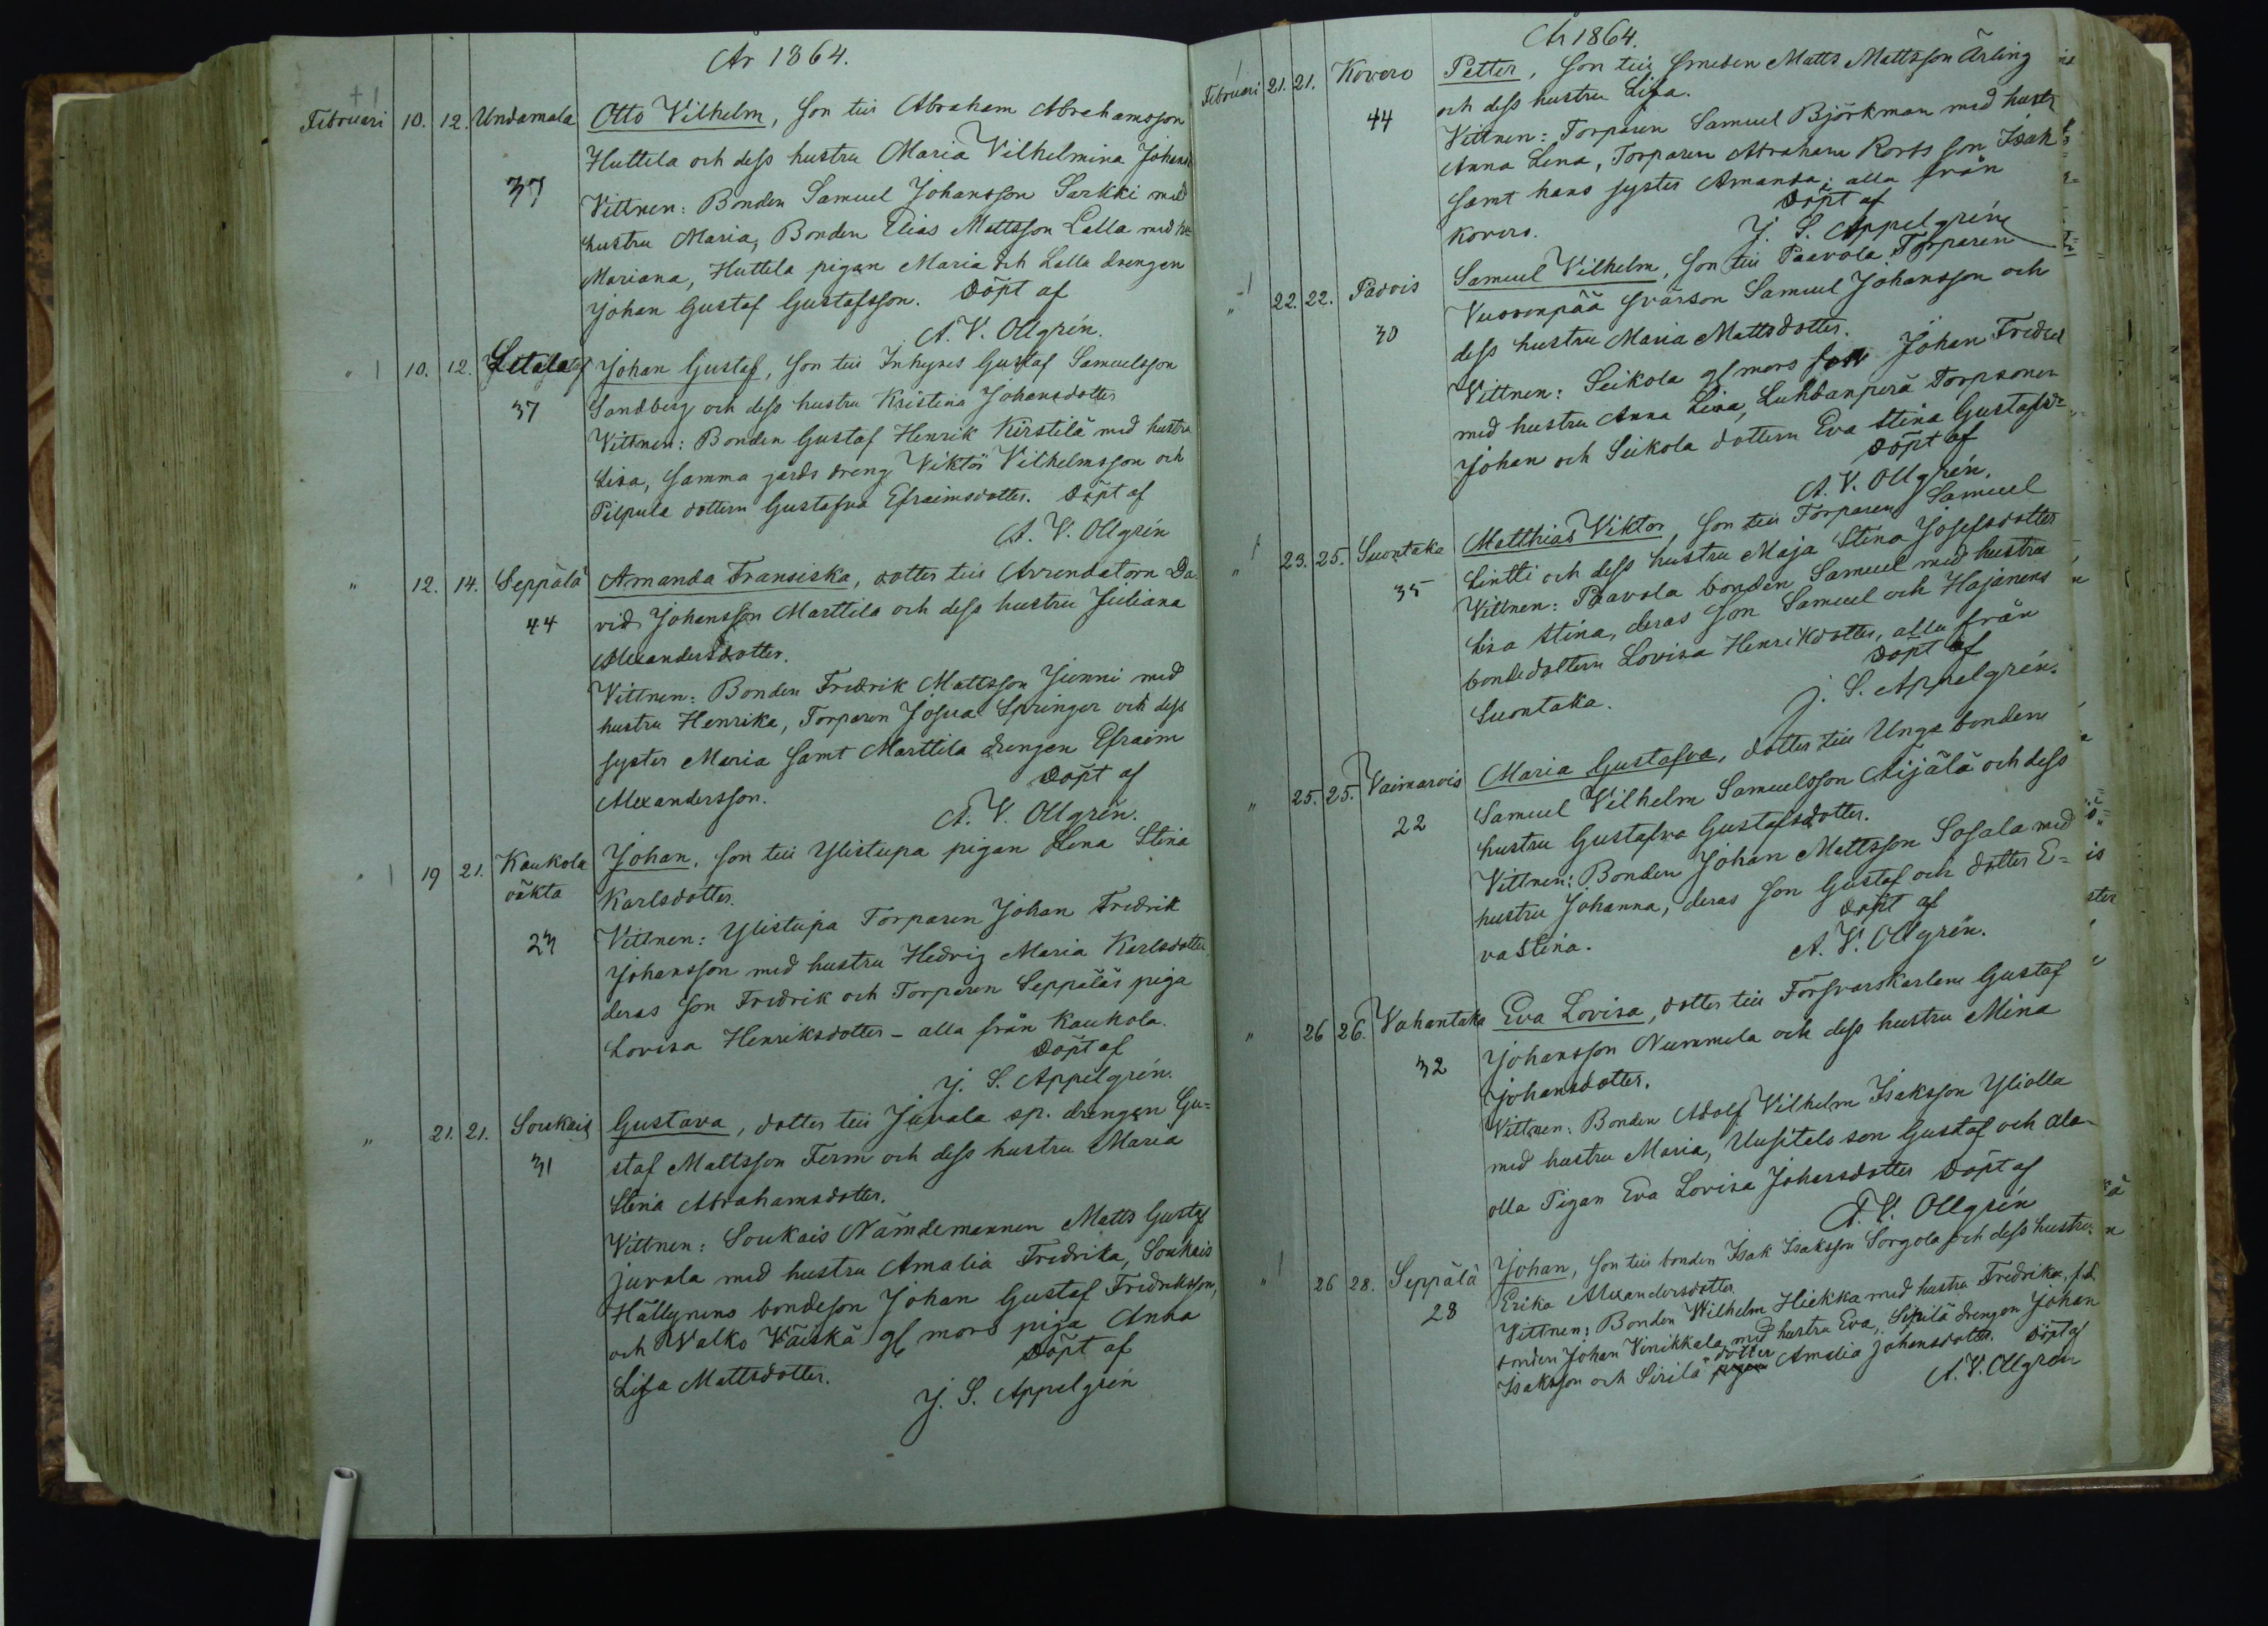 År 1864.
+ 1
Februari 10. 12. Undamala Otto Vilhelm, Son till Abraham Abrahamsson
Huttila och dess hustru Maria Vilhelmina Johans
37 Vittnen: Bonden Samuel Johansson Sarkki med
hustru Maria, Bonden Elias Mattsson Lalla med hu=
Mariana, Huttila pigan Maria och Lalla drengen
Johan Gustaf Gustafsson. Döpt af
A. V. Ollgrén.
" 1 10. 12. Johan Gustaf, Son till Inhyses Gustaf Samuelsson
37 Sandberg och dess hustru Kristina Johansdotter
Vittnen: Bonden Gustaf Henrik Kirstilä med hustru
Lisa, Samma gårds dreng Viktor Vilhelmsson och
Pilpula dottern Gustafva Efraimsdotter. Döpt af
A. V. Ollgrén
" 12. 14. Seppälä Amanda Fransiska, dotter till Arrendatorn Da-
44 vid Johansson Marttila och dess hustru Juliana
Alexandersdotter.
Vittnen: Bonden Fredrik Mattsson Junni med
hustru Henrika, Torparen Josua Springer och dess
syster Maria Samt Marttila drengen Efraim
Alexandersson. Döpt af
A. V. Ollgrén.
" 1 19 21. Kaukola Johan, son till Ylistupa pigan Lena Stina
oäkta Karlsdotter.
23 Vittnen: Ylistupa Torparen Johan Fredrik
Johansson med hustru Hedvig Maria Karlsdotter,
deras Son Fredrik och Torparen Seppäläs piga
Lovisa Henriksdotter – alla från Kaukola.
Döpt af
J. S. Appelgrén.
" 21. 21. Soukais Gustava, dotter till Juvala sp. drengen Gu=
31 staf Mattsson Ferm och dess hustru Maria
Stina Abrahamsdotter.
Vittnen: Soukais Nämdemannen Matts Gustaf
Juvala med hustru Amalia Fredrika, Soukais
Hällynens bondeson Johan Gustaf Fredriksson,
och Valko Väiskä gl mors piga Anna
Lisa Mattsdotter. Döpt af
J. S. Appelgrén
År 1864.
Februari 21. 21. Kovero Petter, Son till Smeden Matts Mattsson Ärling
och dess hustru Lisa.
44 Vittnen: Torparen Samuel Björkman med hustr
Anna Lena, Torparen Abraham Korts son Isak
samt hans syster Amanda; alla från
Kovero. Döpt af
J. S. Appelgrén
" 1 22. 22. Padvois Samuel Vilhelm, Son till Paavola Torparen
30 Vuorenpää svärson Samuel Johansson och
dess hustru Maria Mattsdotter.
Vittnen: Seikola gl mors son Johan Fredrik
med hustru Anna Lisa, Luhdanperä Torpsonen
Johan och Seikola dottern Eva Stina Gustafsd=
Döpt af
A. V. Ollgrén.
" 23. 25. Suontaka Matthias Viktor, Son till Torparen Samuel
35 Lintti och dess hustru Maja Stina Josefsdotter
Vittnen: Paavola bonden Samuel med hustru
Lisa Stina, deras Son Samuel och Hajanens
bondedottern Lovisa Henriksdotter, alla från
Suontaka. Döpt af
J. S. Appelgrén.
" 25. 25. Vaimarois Maria Gustafva, dotter till Unga bonden
22 Samuel Vilhelm Samuelsson Äijälä och dess
hustru Gustafva Gustafsdotter.
Vittnen: Bonden Johan Mattsson Sofala med
hustru Johanna, deras Son Gustaf och dotter E=
vastina. Döpt af
A. V. Ollgrén.
" 26 26. Vahantaka Eva Lovisa, dotter till Försvarskarlen Gustaf
32 Johansson Nummela och dess hustru Mina
Johansdotter.
Vittnen: Bonden Adolf Vilhelm Isaksson Yliolla
med hustru Maria, Uusitalo son Gustaf och Ala-
olla Pigan Eva Lovisa Johansdotter Döpt af
A. V. Ollgrén
" 1 26 28. Seppälä Johan, Son till bonden Isak Isaksson Sorgola och dess hustru
28 Erika Alexandersdotter.
Vittnen: Bonden Wilhelm Hiekka med hustru Fredrika, f.d.
bonden Johan Vinikkala med hustru Eva, Sipilä drengen Johan
Isaksson och Sirilä dotter Amalia Johansdotter. Döpt af
A. V. Ollgrén